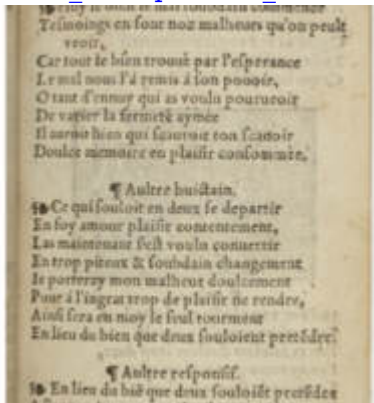 Tesmoings en sont noz malheurs qu'on peult
veoir,
Car tout le bien trouué par l'esperance
Le mal nous l'a remis à son pouoir,
O tant d'ennuy qui as voulu pourueoir
De varier la fermeté aymée
Il auroit bien qui sçauroit ton sçauoir
Doulce memoire en plaisir consommée.
¶ Aultre huictain.
Ce qui souloit en deux se departir
En soy amour plaisir contentement,
Las maintenant s'est voulu conuertir
En trop piteux & soubdain changement
Ie porteray mon malheur doulcement
Pour à l'ingrat trop de plaisir ne rendre,
Ainsi sera en moy le seul tourment
En lieu du bien que deux souloient pretẽdre.
¶ Aultre responsif.
En lieu du biẽ que deux souloiẽt pretẽdre